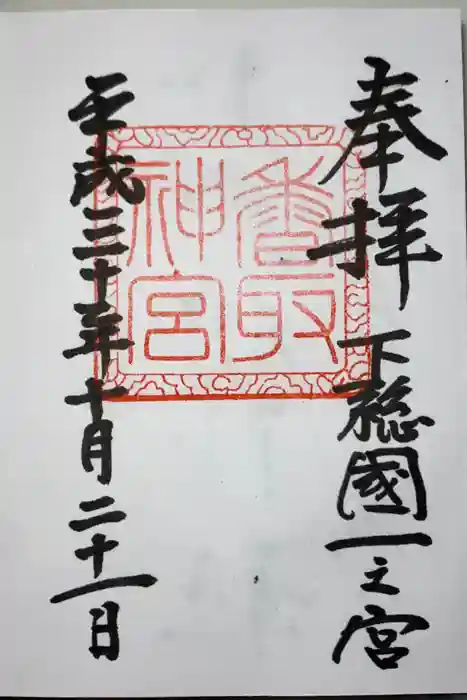 奉拝 下総國一之宮
香取
神宮
平成三十年十月二十一日